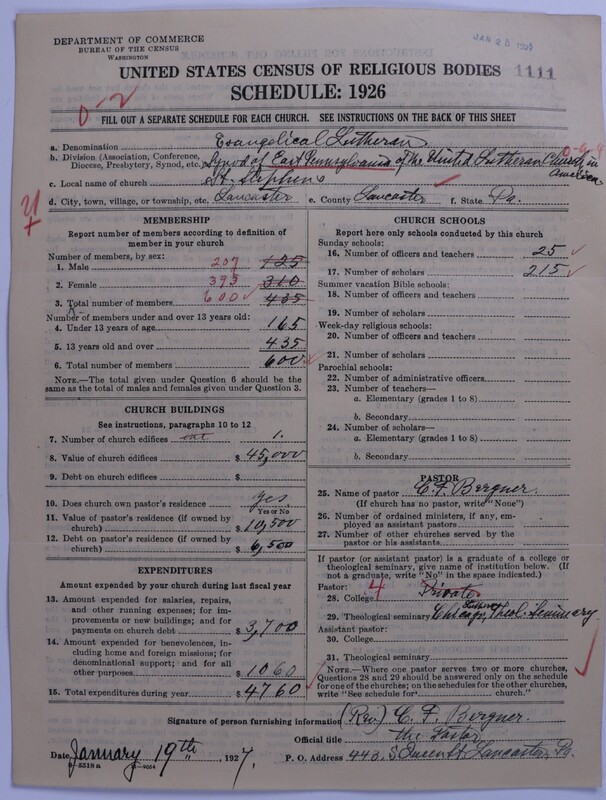 DEPARTMENT OF COMMERCE
BUREAU OF THE CENSUS
WASHINGTON
UNITED STATES CENSUS OF RELIGIOUS BODIES 1111
SCHEDULE: 1926
0-2
FILL OUT A SEPARATE SCHEDULE FOR EACH CHURCH. SEE INSTRUCTIONS ON THE BACK OF THIS SHEET
a. Denomination Evangelical Lutheran
b. Division (Association, Conference, Diocese, Presbytery, Synod, etc.) Synod of East Pennsylvania of the United Lutheran Church in America
c. Local name of church St Stephens
d. City, town, village, or township, etc. Lancaster e. County Lancaster f. State Pa.
MEMBERSHIP
Report number of members according to definition of
member in your church
Number of members, by sex:
1. Male 207 125
2. Female 393 310
3. Total number of members 600 435
Number of members under and over 13 years old:
4. Under 13 years of age 165
5. 13 years old and over 435
6. Total number of members 600
NOTE.—The total given under Question 6 should be
same as the total of males and females given under Question 3.
CHURCH BUILDINGS
See instructions, paragraphs 10 to 12
7. Number of church edifices one 1.
8. Value of church edifices $ 45,000
9. Debt on church edifices $
10. Does church own pastor's residence Yes
Yes or No
11. Value of pastor's residence (if owned by
church) $ 10,500
12. Debt on pastor's residence (if owned by
church) $ 6,500
EXPENDITURES
Amount expended by your church during last fiscal year
13. Amount expended for salaries, repairs,
and other running expenses; for im-
provements or new buildings; and for
payments on church debt $ 3,700
14. Amount expended for benevolences, in-
cluding home and foreign missions; for
denominational support; and for all
other purposes $ 1060
15. Total expenditures during year $ 4760
CHURCH SCHOOLS
Report here only schools conducted by this church
Sunday schools:
16. Number of officers and teachers 25
17. Number of scholars 215
Summer vacation Bible schools:
18. Number of officers and teachers
19. Number of scholars
Week-day religious schools:
20. Number of officers and teachers
21. Number of scholars
Parochial schools:
22. Number of administrative officers
23. Number of teachers—
a. Elementary (grades 1 to 8)
b. Secondary
24. Number of scholars—
a. Elementary (grades 1 to 8)
b. Secondary
PASTOR
25. Name of pastor C. F. Bergner.
(If church has no pastor, write "None")
26. Number of ordained ministers, if any, em-
ployed as assistant pastors
27. Number of other churches served by the
pastor or his assistants
If pastor (or assistant pastor) is a graduate of a college or
theological seminary, give name of institution below. (If
not a graduate, write "No" in the space indicated.)
Pastor:
28. College 4 Private
29. Theological seminary Chicago Luthern Theol. Seminary
Assistant pastor:
30. College
31. Theological seminary
NOTE.—Where one pastor serves two or more churches,
Questions 28 and 29 should be answered only on the schedule
for one of the churches; on the schedules for the other churches,
write "See schedule for church."
Signature of person furnishing information (Rev.) C. F. Bergner.
Official title the Pastor
Date January 19th, 1927. P. O. Address 440. S Queen St Lancaster, Pa.